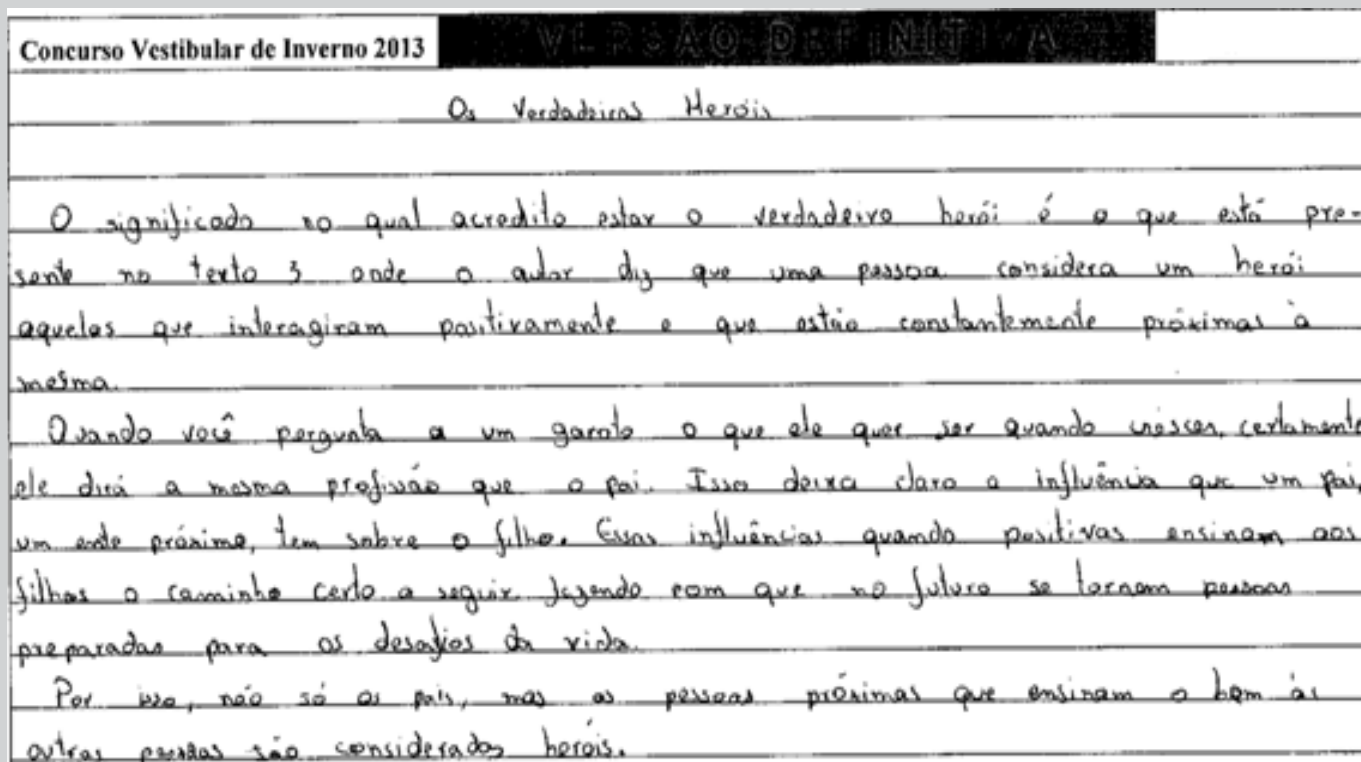 Concurso Vestibular de Inverno 2013 VERSÃO DEFINITIVA
Os Verdadeiros Heróis
O significado no qual acredito estar o verdadeiro herói é o que está pre-
sente no texto 3 onde o autor diz que uma pessoa considera um herói
aquelas que interagiram positivamente e que estão constantemente próximas à
mesma.
Quando você pergunta a um garoto o que ele quer ser quando crescer, certamente
ele dirá a mesma profissão que o pai. Isso deixa claro a influência que um pai,
um ente próximo, tem sobre o filho. Essas influências quando positivas ensinam aos
filhos o caminho certo a seguir fazendo com que no futuro se tornem pessoas
preparadas para os desafios da vida.
Por isso, não só os pais, mas as pessoas próximas que ensinam o bem às
outras pessoas são considerados heróis.